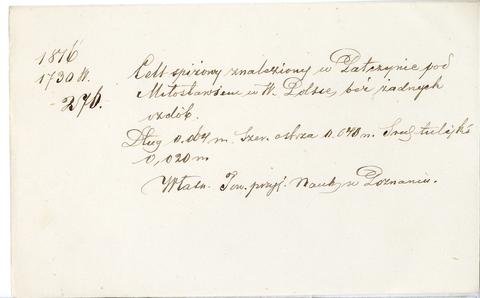 1876
1730 W.
276.
Celt spiżowy znaleziony w Pałczynie pod
Miłosławiem w W. Polsce, bez żadnych
ozdób.
Dług. 0.087 m. Szer. ostrza 0.040 m. Śred. tulejki
0,020 m
Własn. Tow. przyj. Nauk, w Poznaniu.